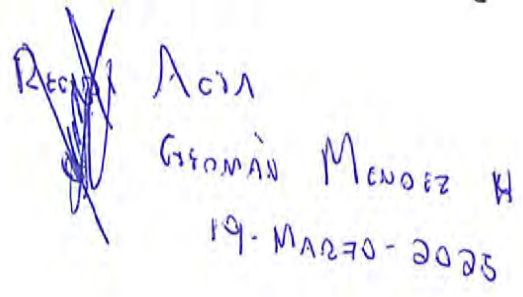 Recibí Acta
Germán Mendez H
19-Marzo-2025